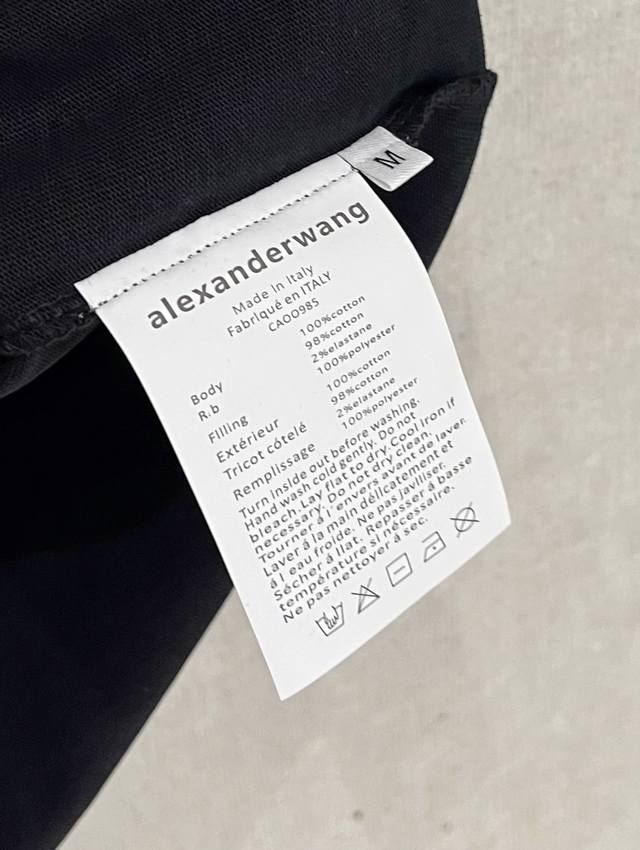 M
alexanderwang
Made in Italy
Fabriqué en ITALY
CAO098S
Body 100%cotton
R.b 98%cotton
2%elastane
Filling 100%polyester
Extérieur 100%cotton
Tricot côtelé 98%cotton
2%elastane
Remplissage 100%polyester
Turn inside out before washing.
Hand wash cold gently. Do not
bleach.Lay flat to dry. Cool iron if
necessary. Do not dry clean.
Tourner á l'envers avant de laver.
Laver á la main délicatement et
á l eau froide. Ne pas javilliser.
Sécher á llat. Repasser á basse
température si nécessaire.
Ne pas nettoyer á sec.